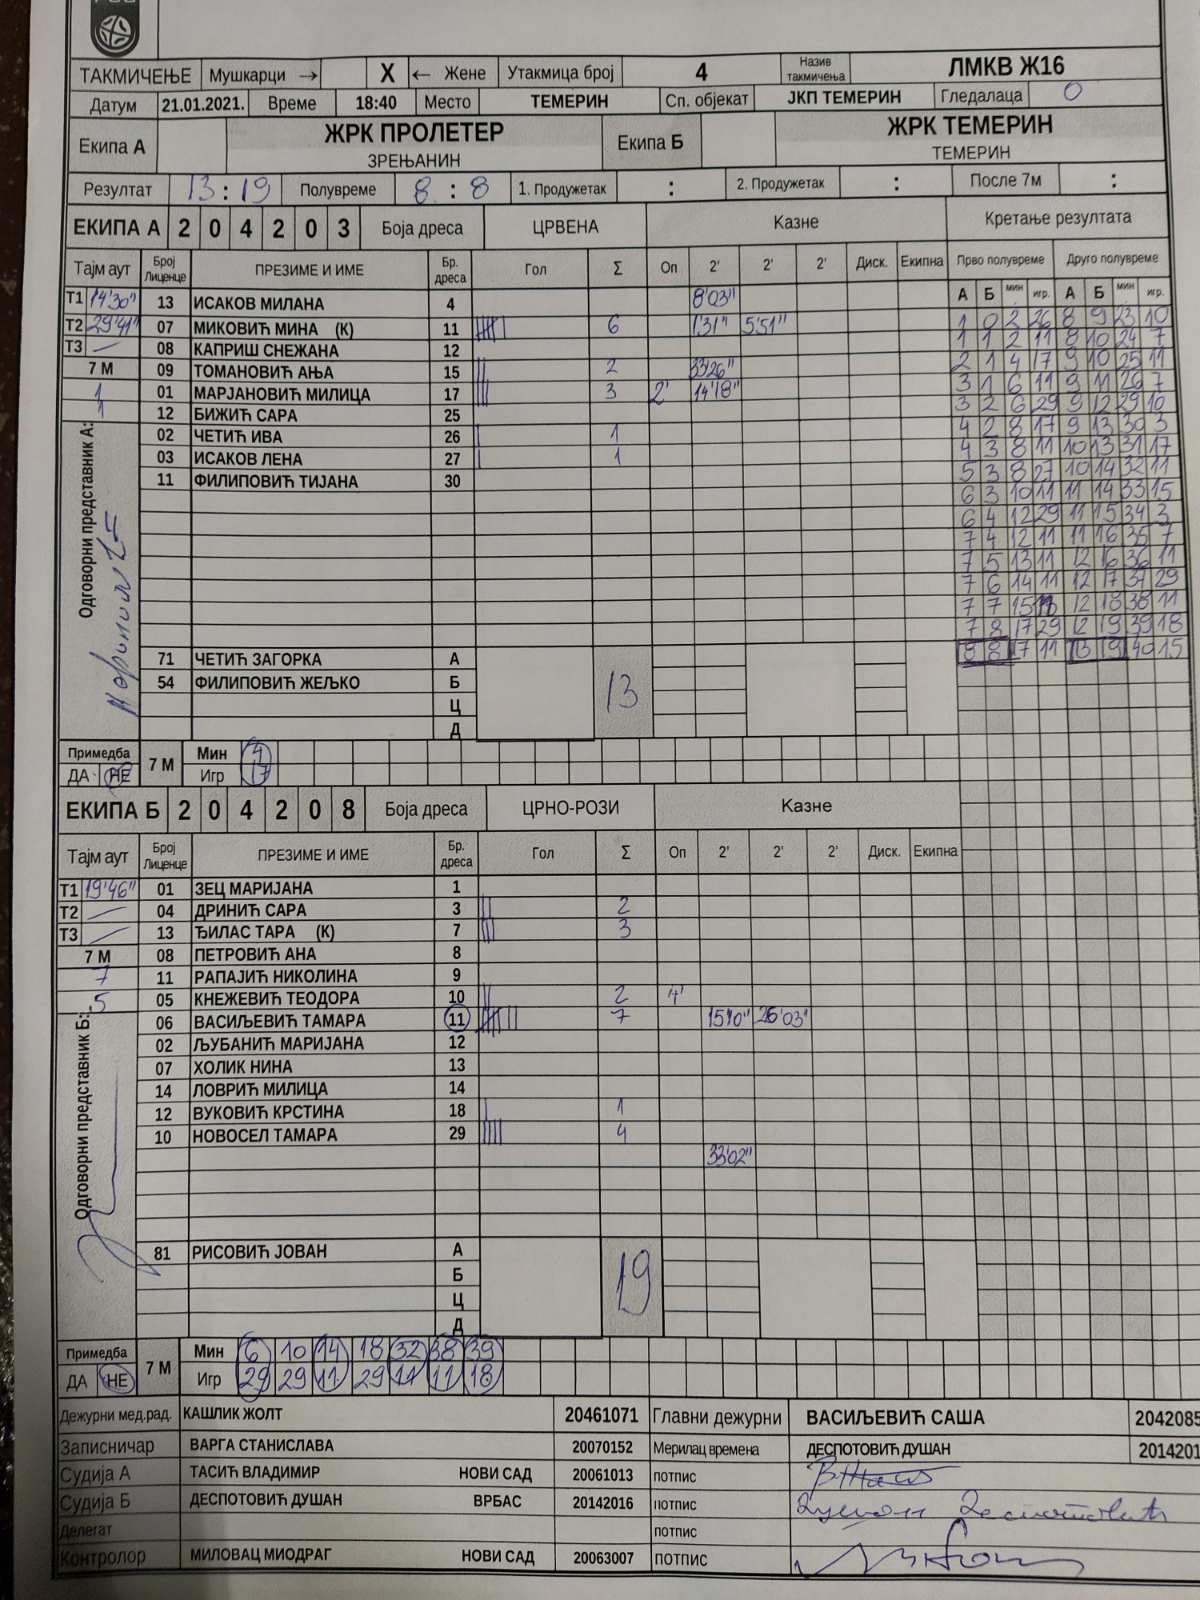 ТАКМИЧЕЊЕ Мушкарци → X ← Жене Утакмица број 4 Назив такмичења ЛМКВ Ж16
Датум 21.01.2021. Време 18:40 Место ТЕМЕРИН Сп. објекат ЈКП ТЕМЕРИН Гледалаца 0
Екипа А ЖРК ПРОЛЕТЕР Екипа Б ЖРК ТЕМЕРИН
ЗРЕЊАНИН ТЕМЕРИН
Резултат 13 : 19 Полувреме 8 : 8 1. Продужетак : 2. Продужетак : После 7м :
ЕКИПА А 2 0 4 2 0 3 Боја дреса ЦРВЕНА Казне Кретање резултата
Тајм аут Број Лиценце ПРЕЗИМЕ И ИМЕ Бр. дреса Гол Σ Оп 2' 2' 2' Диск. Екипна Прво полувреме Друго полувреме
А Б мин игр. А Б мин игр.
Т1 14'30" 13 ИСАКОВ МИЛАНА 4 8'03"
Т2 29'41" 07 МИКОВИЋ МИНА (К) 11 6 1'31" 5'51"
Т3 — 08 КАПРИШ СНЕЖАНА 12
7 М 09 ТОМАНОВИЋ АЊА 15 2 33'26"
1 01 МАРЈАНОВИЋ МИЛИЦА 17 3 2' 14'18"
1 12 БИЖИЋ САРА 25
02 ЧЕТИЋ ИВА 26 1
03 ИСАКОВ ЛЕНА 27 1
11 ФИЛИПОВИЋ ТИЈАНА 30
1 0 2 26 8 9 23 10
1 1 2 11 8 10 24 7
2 1 4 17 9 10 25 11
3 1 6 11 9 11 26 7
3 2 6 29 9 12 29 10
4 2 8 17 9 13 30 3
4 3 8 11 10 13 31 17
5 3 8 27 10 14 32 11
6 3 10 11 11 14 33 15
6 4 12 29 11 15 34 3
7 4 12 11 11 16 35 7
7 5 13 11 12 16 36 11
7 6 14 11 12 17 37 29
7 7 15 12 18 38 11
7 8 17 29 12 19 39 18
8 8 17 11 13 19 40 15
Одговорни представник А:
71 ЧЕТИЋ ЗАГОРКА А
54 ФИЛИПОВИЋ ЖЕЉКО Б 13
Ц
Д
Примедба 7 М Мин 4
ДА НЕ Игр 17
ЕКИПА Б 2 0 4 2 0 8 Боја дреса ЦРНО-РОЗИ Казне
Тајм аут Број Лиценце ПРЕЗИМЕ И ИМЕ Бр. дреса Гол Σ Оп 2' 2' 2' Диск. Екипна
Т1 19'46" 01 ЗЕЦ МАРИЈАНА 1
Т2 — 04 ДРИНИЋ САРА 3 2
Т3 — 13 ЂИЛАС ТАРА (К) 7 3
7 М 08 ПЕТРОВИЋ АНА 8
7 11 РАПАЈИЋ НИКОЛИНА 9
5 05 КНЕЖЕВИЋ ТЕОДОРА 10 2 4'
06 ВАСИЉЕВИЋ ТАМАРА 11 7 15'10" 26'03"
02 ЉУБАНИЋ МАРИЈАНА 12
07 ХОЛИК НИНА 13
14 ЛОВРИЋ МИЛИЦА 14
12 ВУКОВИЋ КРСТИНА 18 1
10 НОВОСЕЛ ТАМАРА 29 4
33'02"
Одговорни представник Б:
81 РИСОВИЋ ЈОВАН А
Б 19
Ц
Д
Примедба 7 М Мин 6 10 14 18 32 38 39
ДА НЕ Игр 29 29 11 29 11 11 18
Дежурни мед.рад. КАШЛИК ЖОЛТ 20461071 Главни дежурни ВАСИЉЕВИЋ САША 2042085
Записничар ВАРГА СТАНИСЛАВА 20070152 Мерилац времена ДЕСПОТОВИЋ ДУШАН 2014201
Судија А ТАСИЋ ВЛАДИМИР НОВИ САД 20061013 потпис
Судија Б ДЕСПОТОВИЋ ДУШАН ВРБАС 20142016 потпис
Делегат потпис
Контролор МИЛОВАЦ МИОДРАГ НОВИ САД 20063007 потпис